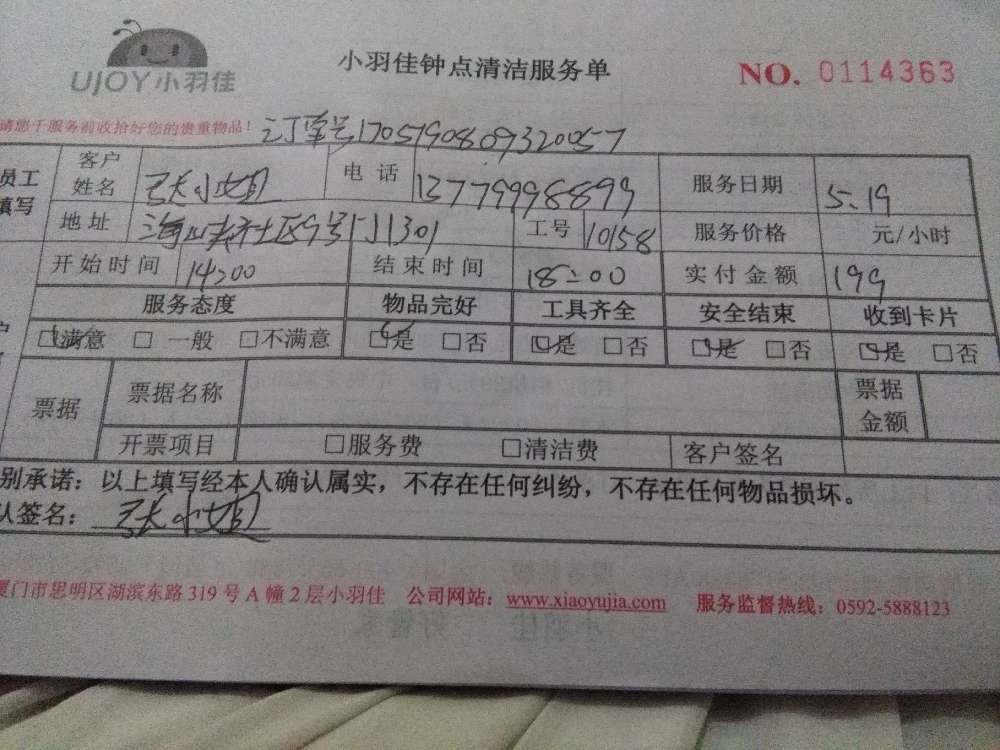 UJOY小羽佳
小羽佳钟点清洁服务单
NO. 0114363
请您于服务前收拾好您的贵重物品！
订单号1705190809320057
员工填写
客户姓名 张小姐 电话 13779998899 服务日期 5.19
地址 工号 10158 服务价格 元/小时
开始时间 14:00 结束时间 18:00 实付金额 199
服务态度 物品完好 工具齐全 安全结束 收到卡片
☑满意 □一般 □不满意 ☑是 □否 ☑是 □否 ☑是 □否 ☑是 □否
票据 票据名称 票据金额
开票项目 □服务费 □清洁费 客户签名
别承诺：以上填写经本人确认属实，不存在任何纠纷，不存在任何物品损坏。
认签名：张小姐
厦门市思明区湖滨东路319号A幢2层小羽佳 公司网站：www.xiaoyujia.com 服务监督热线：0592-5888123